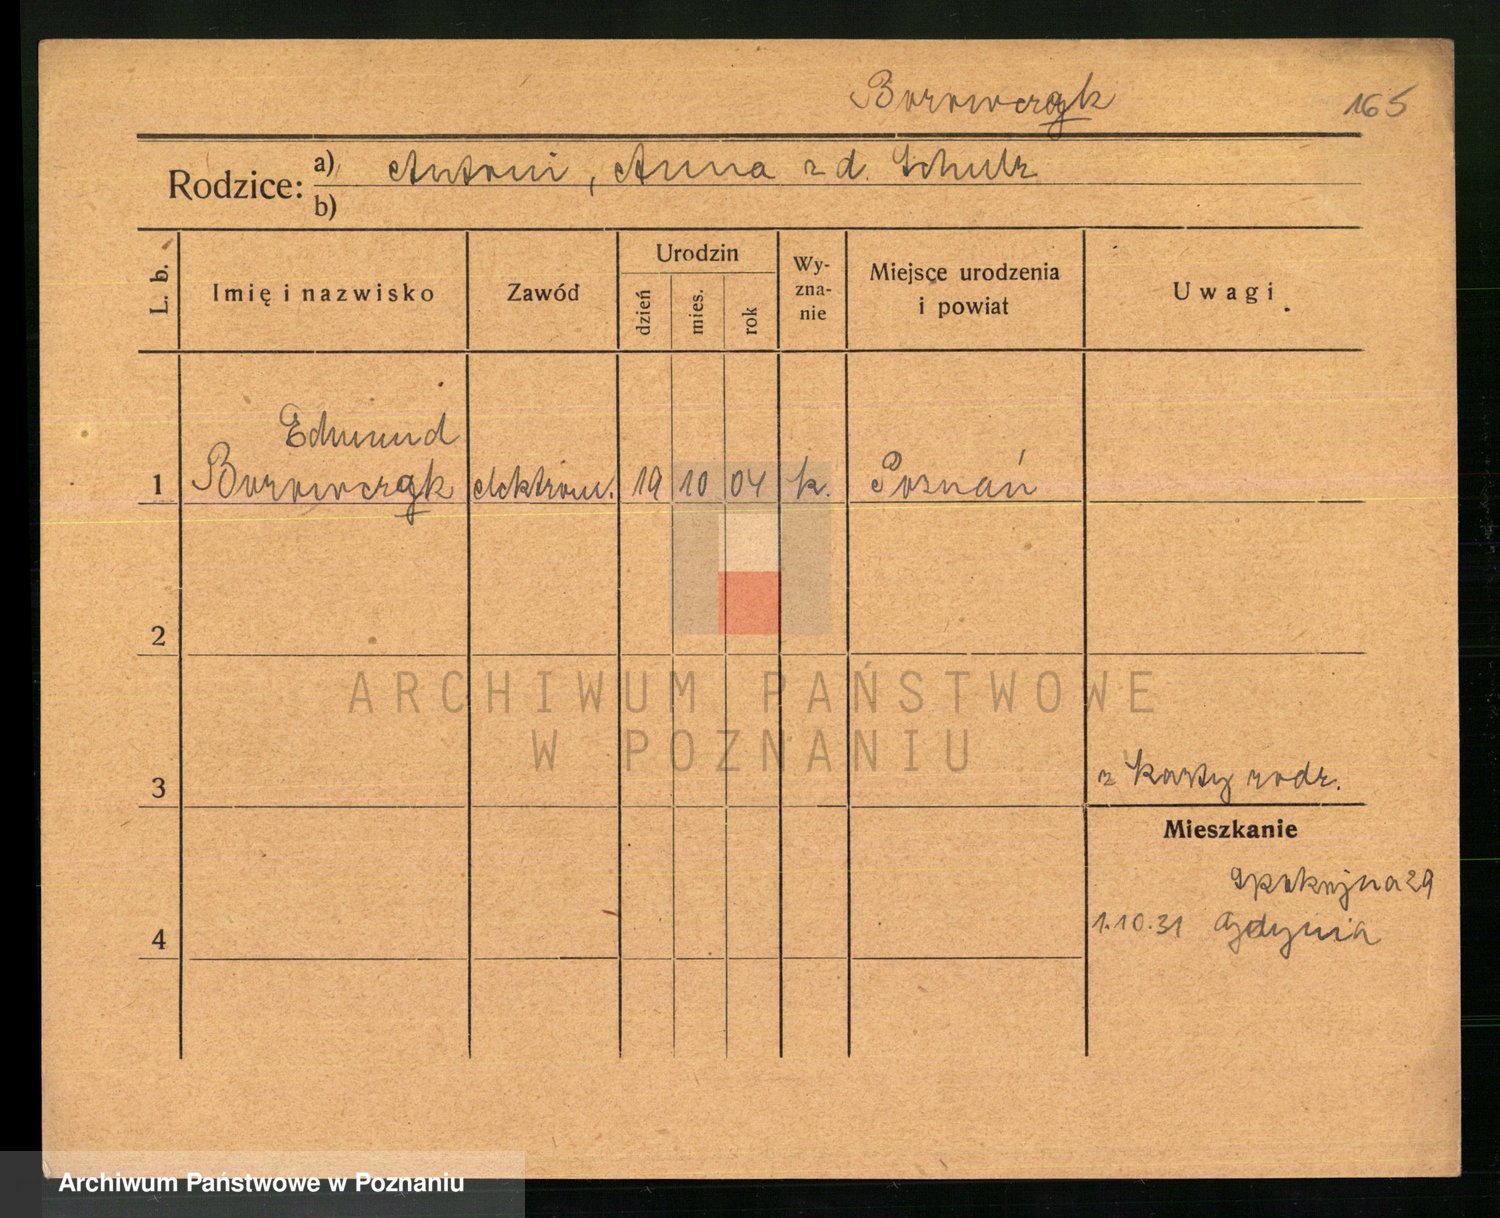 Borowczyk
165
Rodzice: a) Antoni, Anna z d. Schulz
b)
L. b. Imię i nazwisko Zawód Urodzin dzień mies. rok Wy-zna-nie Miejsce urodzenia i powiat Uwagi
Edmund
1 Borowczyk elektrom. 19 10 04 k. Poznań
2
ARCHIWUM PAŃSTWOWE
W POZNANIU
3 z karty rodz.
Mieszkanie
Spokojna 29
1.10.31 Gdynia
4
Archiwum Państwowe w Poznaniu